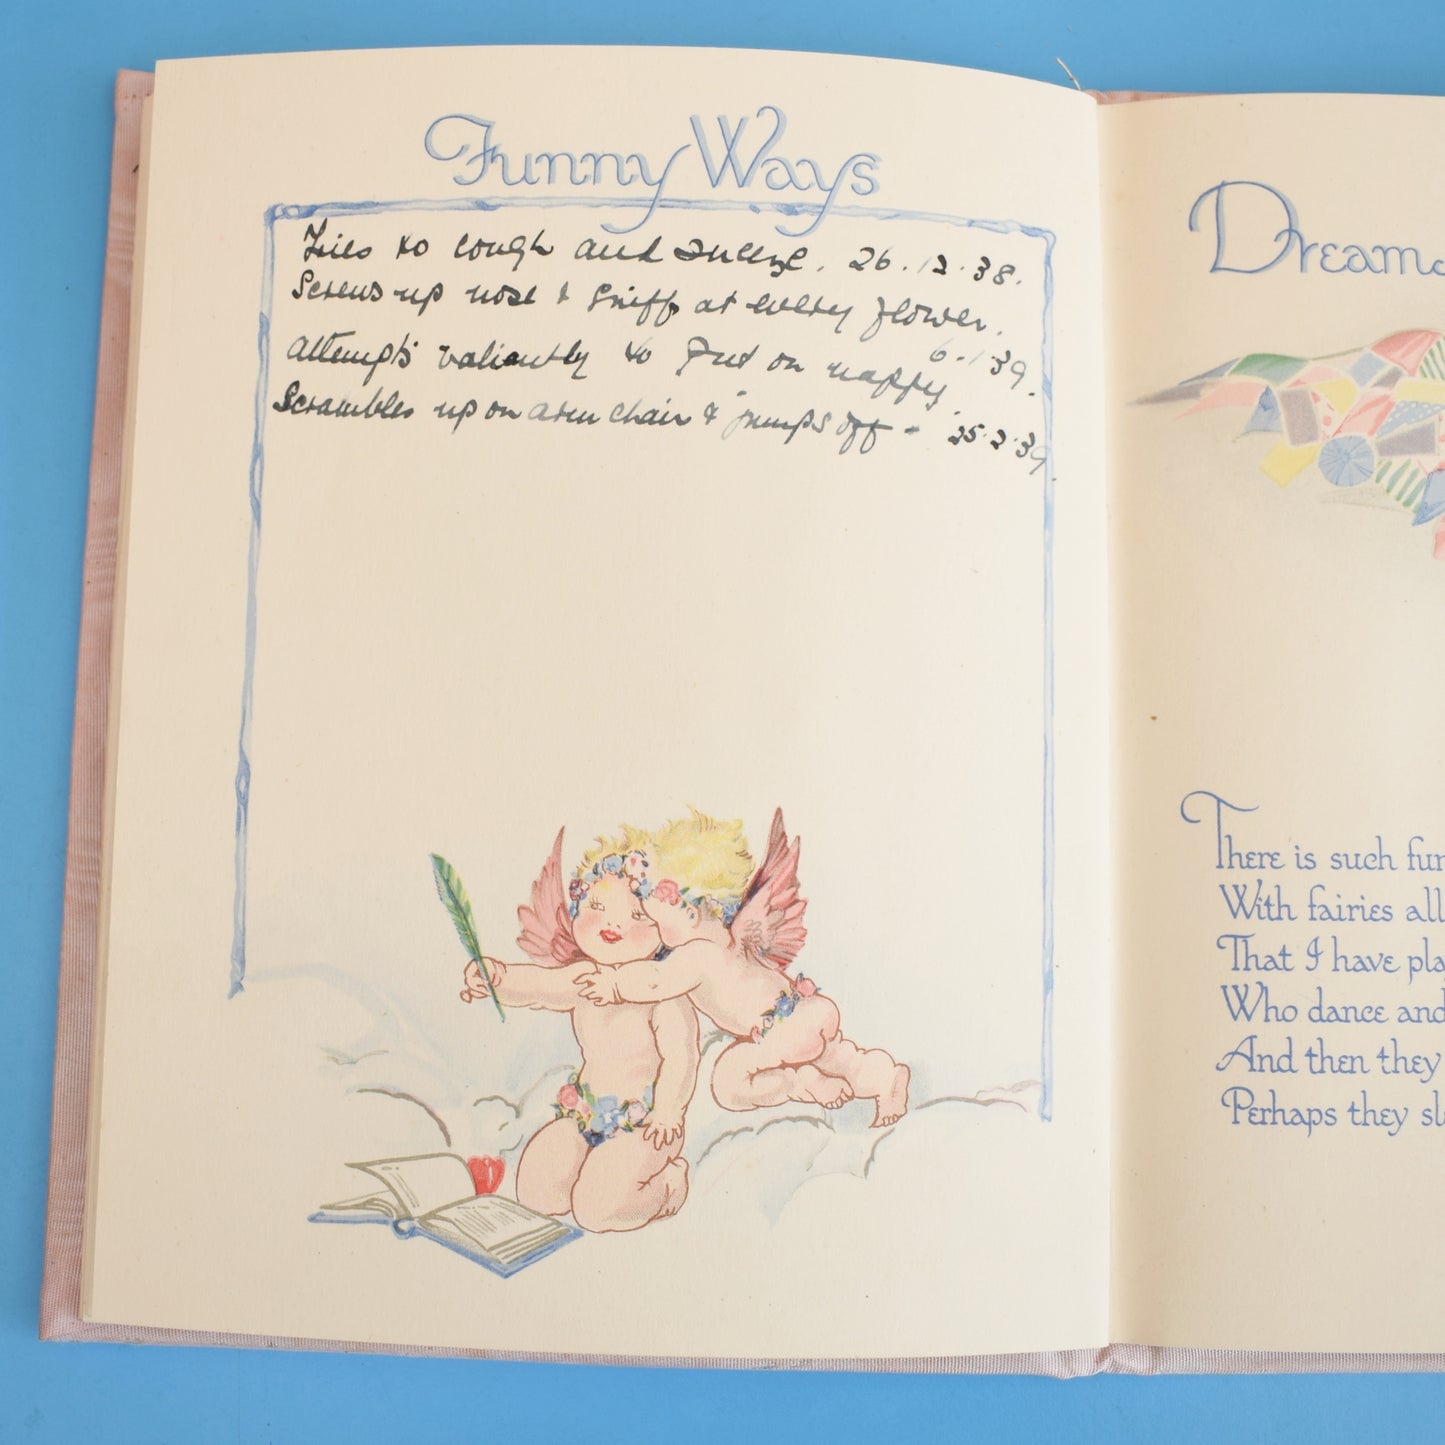 Funny Ways
Tries to cough and sneeze. 26.12.38.
Screws up nose & sniffs at every flower.
6.1.39.
Attempts valiantly to put on nappy.
Scrambles up on arm chair & jumps off - 25.2.39.
Dreams
There is such fun
With fairies all
That I have pla
Who dance and
And then they
Perhaps they sl